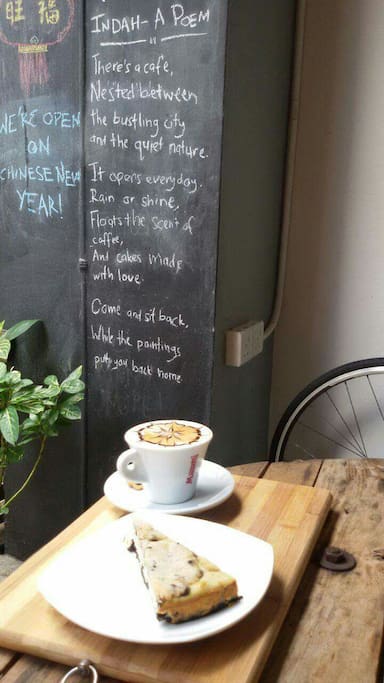 旺 福
WE'RE OPEN
ON
CHINESE NEW
YEAR!
INDAH - A POEM
There's a cafe,
Nested between
the bustling city
and the quiet nature.
It opens everyday.
Rain or shine,
Floats the scent of
coffee,
And cakes made
with love.
Come and sit back,
While the paintings
put you back home